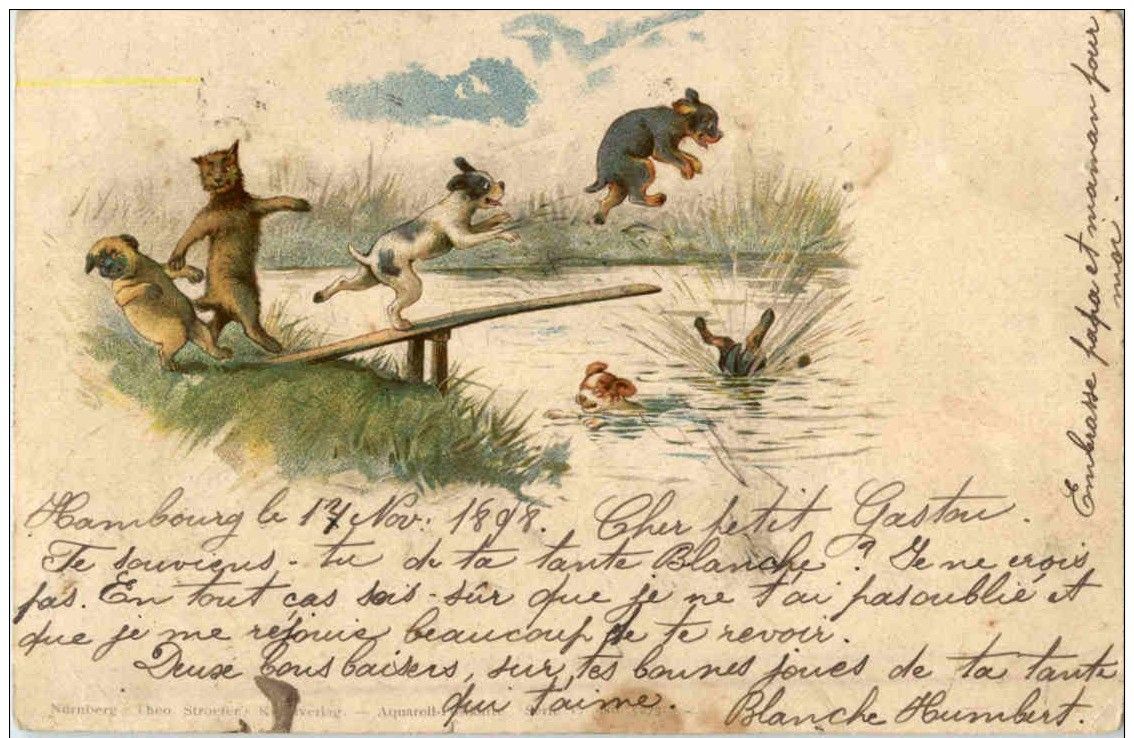 Hambourg le 17 Nov: 1898. Cher petit Gaston.
Te souviens-tu de ta tante Blanche? Je ne crois
pas. En tout cas sois-sûr que je ne t'ai pas oublié et
que je me réjouis beaucoup de te revoir.
Deux bons baisers, sur tes bonnes joues de ta tante
qui t'aime. Blanche Humbert.
Nürnberg Theo. Stroefer's K verlag. — Aquarell-P Serie
Embrasse papa et maman pour
moi.